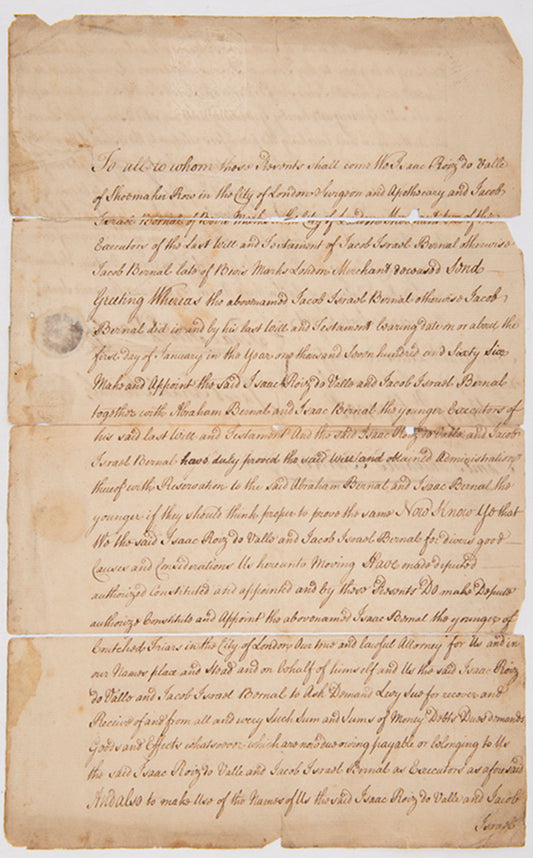 To all to whom these Presents shall come We Isaac Roiz do Valle
of Shoemaker Row in the City of London Surgeon and Apothecary and Jacob
Israel Bernal of Bevis Marks in the City of London Merchant two of the
Executors of the Last Will and Testament of Jacob Israel Bernal otherwise
Jacob Bernal late of Bevis Marks London Merchant deceased Send
Greeting Whereas the abovenamed Jacob Israel Bernal otherwise Jacob
Bernal did in and by his last Will and Testament bearing date on or about the
first day of January in the Year one thousand Seven hundred and Sixty Six
Make and Appoint the said Isaac Roiz do Valle and Jacob Israel Bernal
together with Abraham Bernal and Isaac Bernal the younger Executors of
his said last Will and Testament And the said Isaac Roiz do Valle and Jacob
Israel Bernal have duly proved the said Will and obtained Administration
thereof with Reservation to the said Abraham Bernal and Isaac Bernal the
younger if they should think proper to prove the same Now Know Ye that
We the said Isaac Roiz do Valle and Jacob Israel Bernal for divers good
Causes and Considerations Us hereunto Moving Have made deputed
authorized Constituted and appointed and by these Presents Do make Depute
authorize Constitute and Appoint the abovenamed Isaac Bernal the younger of
Crutched Friars in the City of London Our true and lawful Attorney for Us and in
our Names place and Stead and on behalf of himself and Us the said Isaac Roiz
do Valle and Jacob Israel Bernal to Ask Demand Levy Sue for recover and
Receive of and from all and every Such Sum and Sums of Money Debts Dues demands
Goods and Effects whatsoever which are now due owing payable or belonging to Us
the said Isaac Roiz do Valle and Jacob Israel Bernal as Executors as aforesaid
And also to make Use of the Names of Us the said Isaac Roiz do Valle and Jacob
Israel